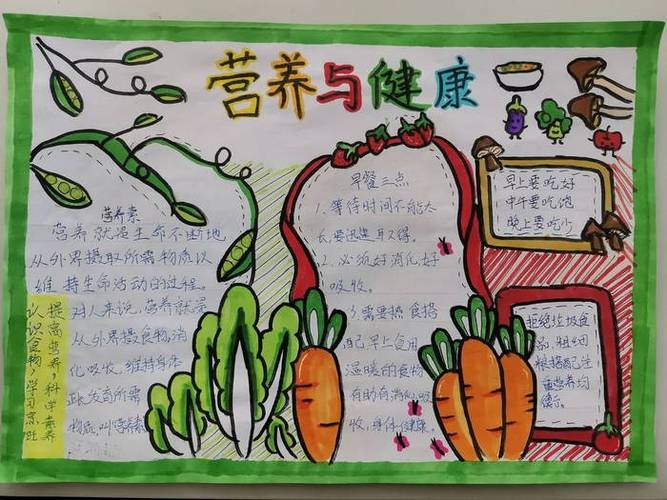 营养与健康
营养素
营养就是生命不断地
从外界摄取所需物质以
维持生命活动的过程。
对人来说，营养就是
从外界摄食物，消
化吸收，维持身体
生长发育所需
物质，叫营养素
提高营养，科学素养
认识食物，学习烹饪
早餐三点
1. 等待时间不能太
长，要迅速取得。
2. 必须好消化，好
吸收。
3. 需要热食搭
配早上食用
温暖的食物
有助有消化，吸
收，身体健康。
早上要吃好
中午要吃饱
晚上要吃少
拒绝垃圾食
品，粗细
粮搭配注
重营养均